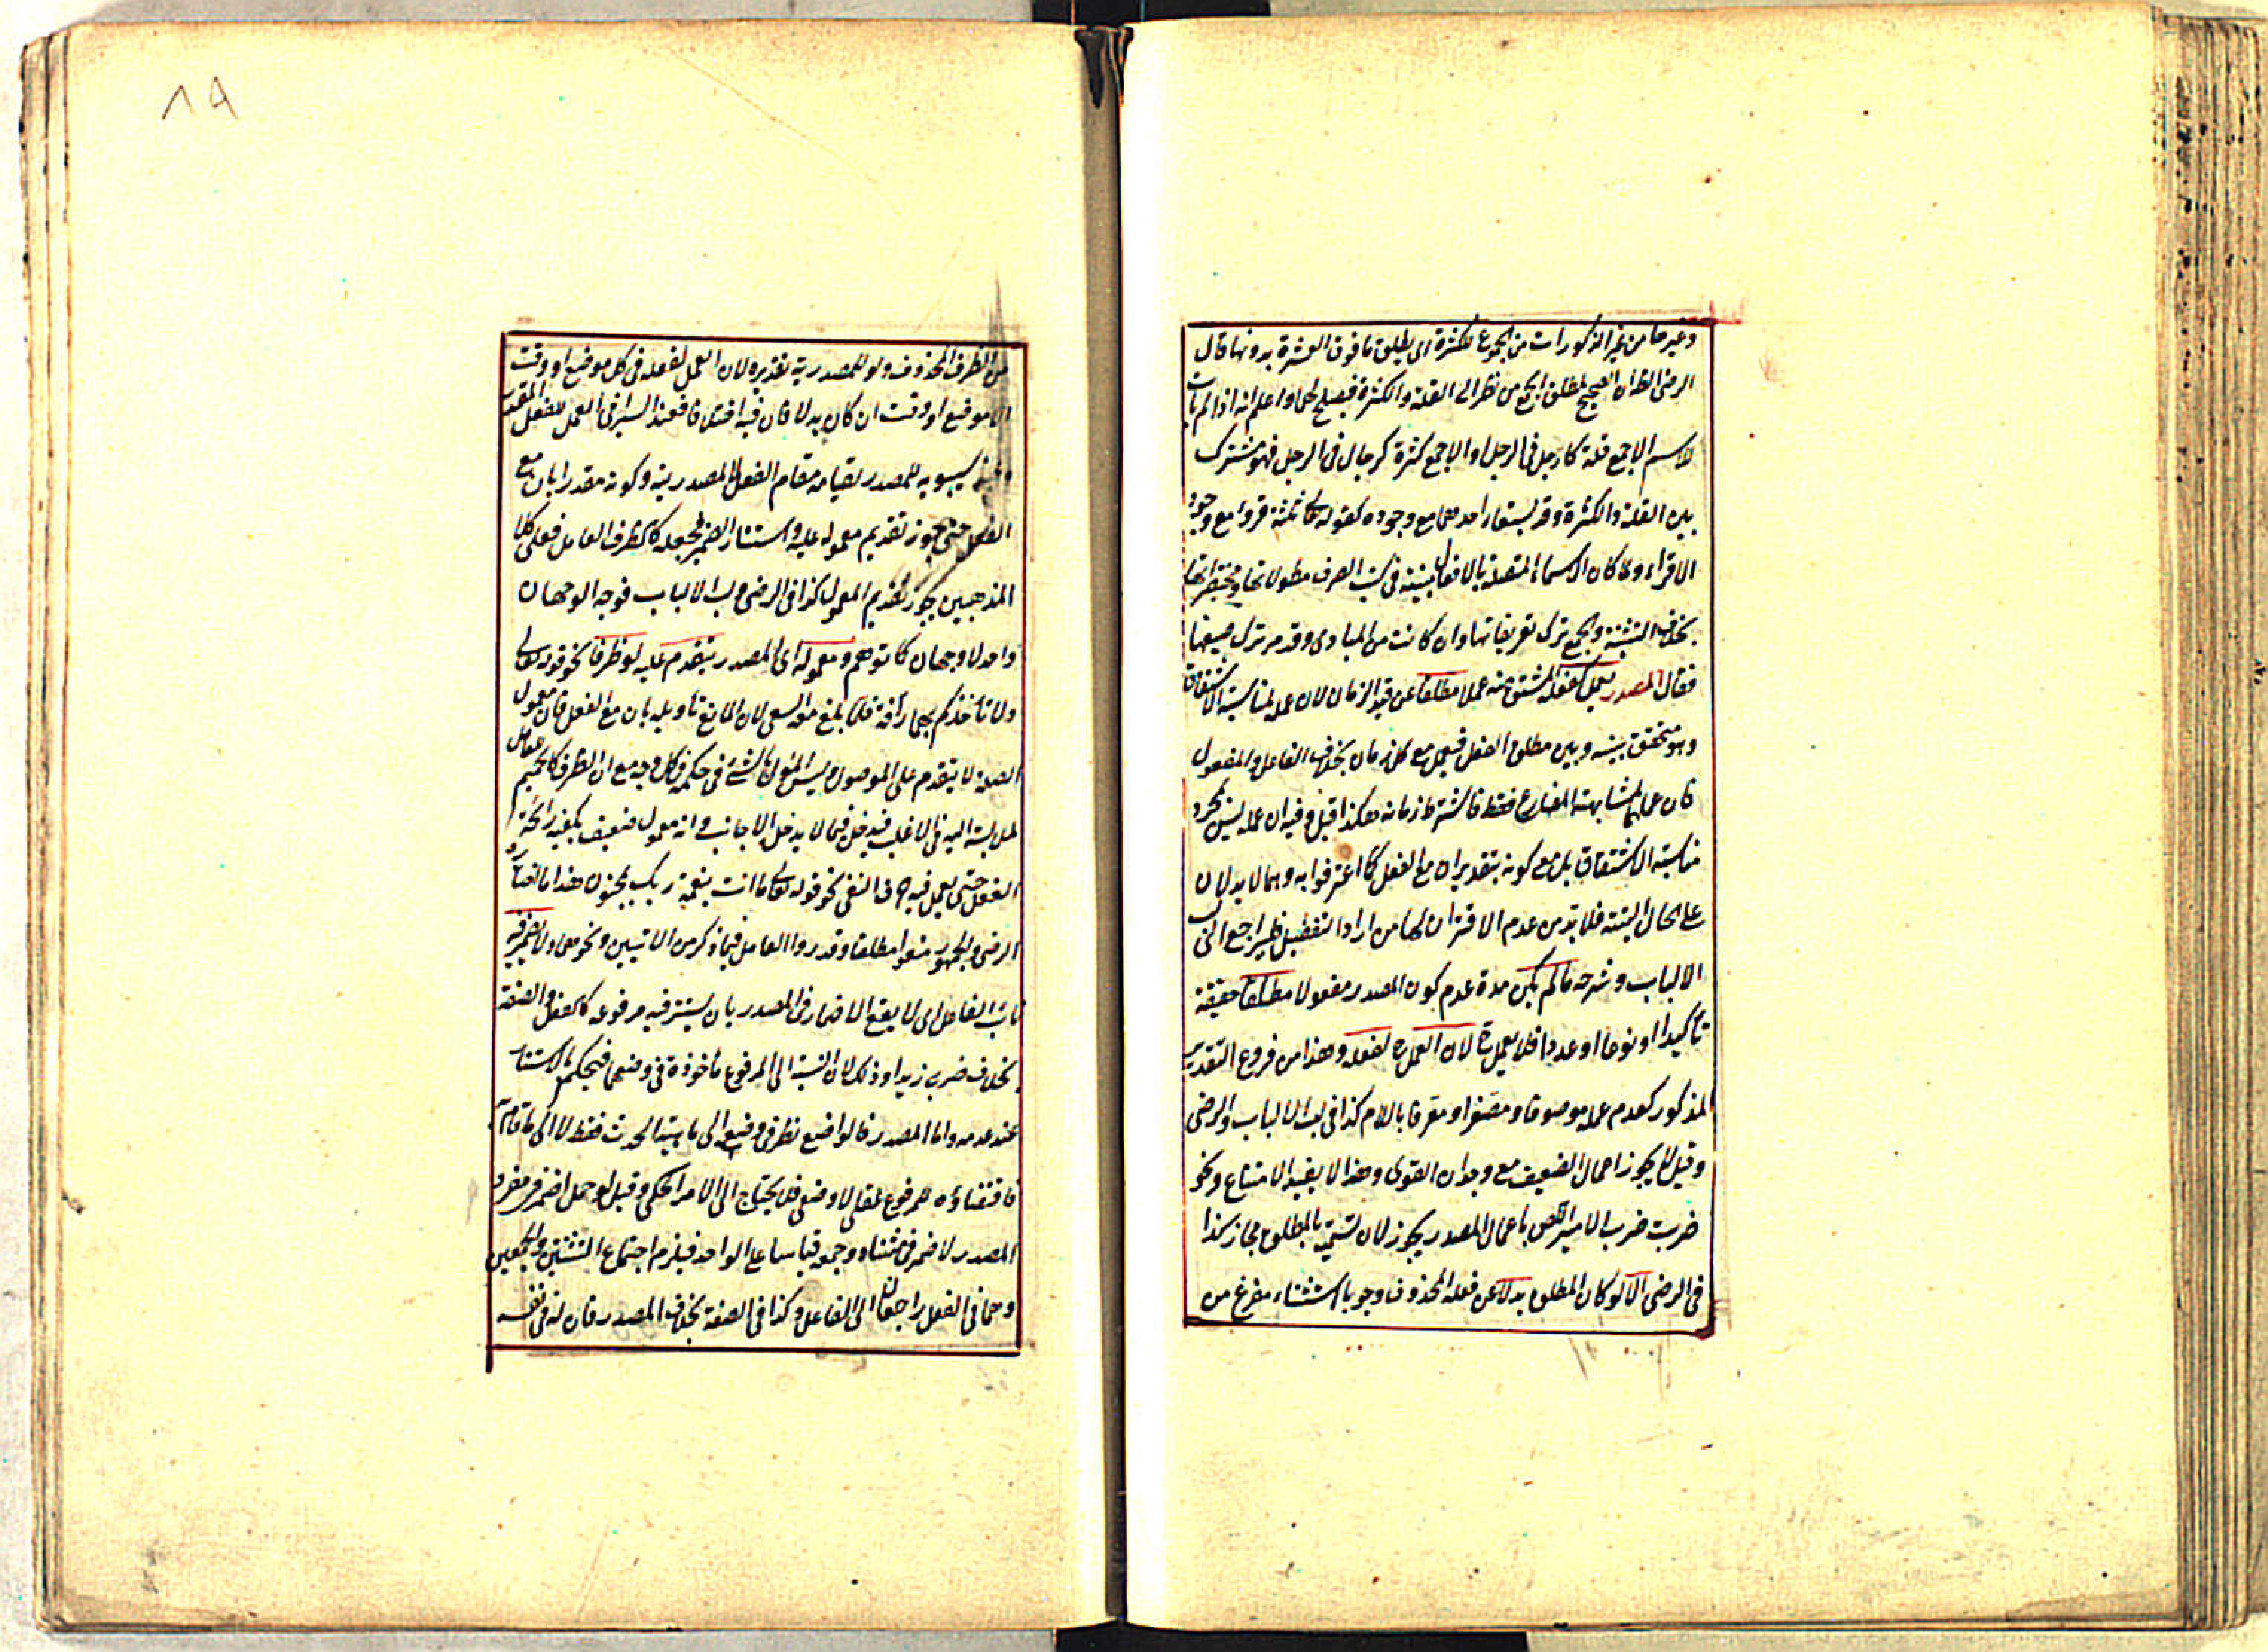 وغيرها من غير المذكورات من الجموع للكثرة اى يطلق ما فوق العشرة بدونها قال
الرضى الظ ان الصحيح لمطلق الجمع من نظر الى القلة والكثرة فيصلح لهما واعلم انه اذا لم يأت
لاسم الا جمع قلة كارجل فى الرجل او الا جمع كثرة كرجال فى الرجل فهو مشترك
بين القلة والكثرة وقد يستعار احدهما مع وجوده كقوله تعالى ثلثة قروء مع وجود
الاقراء ولما كان الاسماء المتصلة بالافعال مبينة فى كتب الصرف مطولاتها ومختصراتها
بخلاف التثنية والجمع ترك تعريفاتها وان كانت من المبادى وقد مر ترك صيغها
فقال المصدر يعمل كفعله المشتق منه عملا مطلقا عن قيد الزمان لان عمله لمناسبة الاشتقاق
وهو متحقق بينه وبين مطلق الفعل فيعمل مع كل زمان بخلاف الفاعل والمفعول
فان عملهما لمشابهته المضارع فقط فاشترط زمانه هكذا قيل وفيه ان عمله ليس لمجرد
مناسبة الاشتقاق بل مع كونه بتقدير ان مع الفعل كما اعترفوا به وهما لا يدلان
على الحال البتة فلا بد من عدم الاقتران بها من اراد التفصيل فليراجع الى لب
الالباب وشرحه ما لم يكن مدة عدم كون المصدر مفعولا مطلقا حقيقة
تأكيدا او نوعا او عددا فلا يعمل ح لان العمل ح لفعله وهذا من فروع التقدير
المذكور كعدم عمله موصوفا ومصغرا ومعرفا باللام كذا فى لب الالباب والرضى
وقيل لا يجوز اعمال الضعيف مع وجدان القوى وهذا لا يفيد الامتناع ونحو
ضربت ضرب الامير اللص باعمال المصدر يجوز لان تسميته بالمطلق مجاز كذا
فى الرضى الا لو كان المطلق بدلا عن فعله المحذوف وجوبا استثناء مفرغ من
٨٩
من الظرف المحذوف ولو للمصدرية تقديره لان العمل لفعله فى كل موضع او وقت
الا موضع او وقت ان كان بدلا فان فيه اختلافا فعند السيرافى العمل للفعل المقدر
وعند سيبويه للمصدر لقيامه مقام الفعل لا المصدرية وكونه مقدرا بان مع
الفعل حتى جوز تقديم معموله عليه واستتار الضمير فجعله كالظرف العامل فعلى كلا
المذهبين يجوز تقديم المعمول كذا فى الرضى ولب الالباب فوجه الوجهان
واحد لا وجهان كما توهم ومعموله اى المصدر يتقدم عليه لو ظرفا نحو قوله تعالى
ولا تأخذكم بهما رأفة فلما بلغ معه السعى لان المانع تأويله بان مع الفعل فان معمول
الصلة لا يتقدم على الموصول وليس المؤول بالشئ فى حكمه من كل وجه مع ان الظرف كالحميم
لملابسته اليه فى الاغلب فيدخل فيما لا يدخل الاجانب وانه معمول ضعيف يكفيه رائحة
الفعل حتى يعمل فيه ما فى النفى نحو قوله تعالى ما انت بنعمة ربك بمجنون هذا ما اختاره
الرضى والجمهور منعوا مطلقا وقدروا العامل فيما ذكر من الاتيين ونحوهما ولا يضمر فيه
نائب الفاعل اى لا يقع الاضمار فى المصدر بان يستتر فيه مرفوعه كالفعل والصفة
بخلاف ضربى زيدا وذلك لان النسبة الى المرفوع مأخوذة فى وضعهما فيحكم بالاستتار
عند عدمه واما المصدر فالواضع نظر فى وضعه الى ماهية الحدث فقط لا الى ما قام
فاقتضاؤه للمرفوع عقلى لا وضعى فلا يحتاج الى الامر الحكمى وقيل لو حمل اضمر فى مفرد
المصدر لاضمر فى مثناه وجمعه قياسا على الواحد فيلزم اجتماع التثنيتين والجمعين
وهما فى الفعل راجعان الى الفاعل وكذا فى الصفة بخلاف المصدر فان له فى نفسه